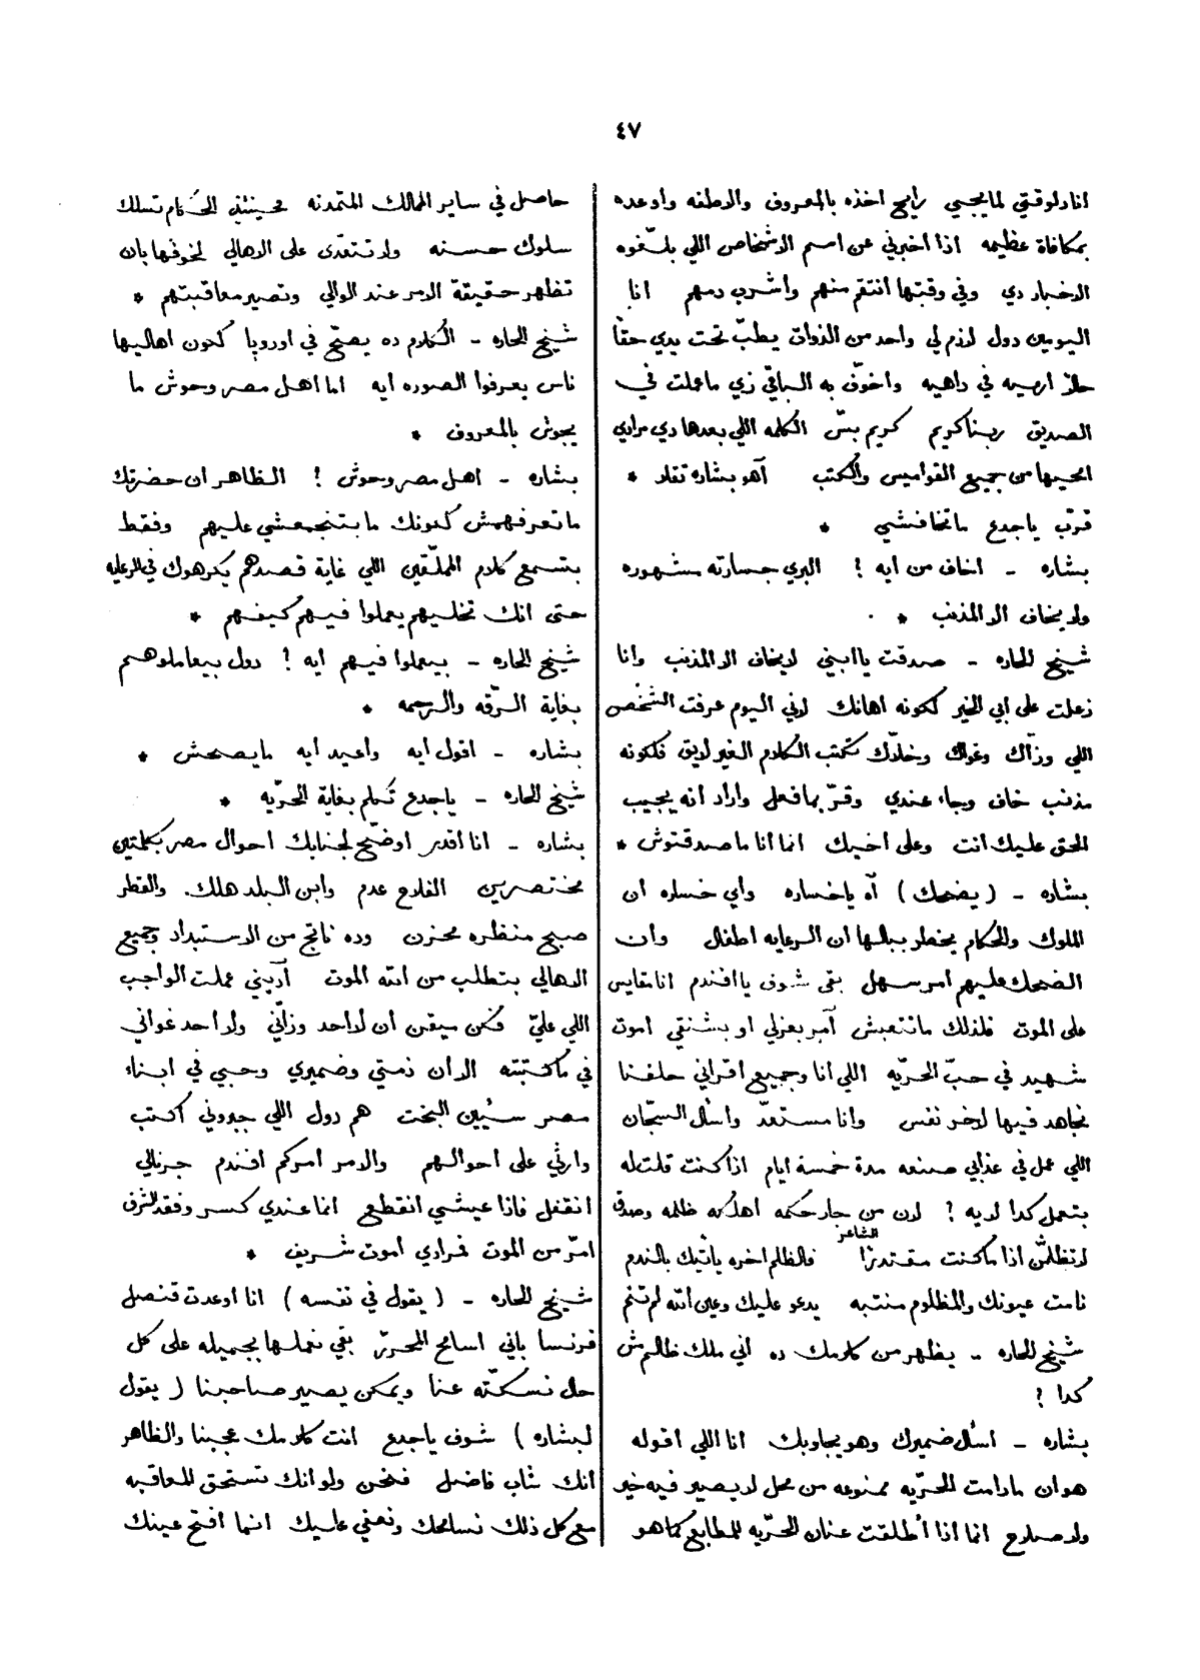 ٤٧
انا دلوقتي لما يجبي رايح اخذه بالمعروف والاطفه واوعده
بمكافاة عظيمه اذا اخبرني عن اسم الاشخاص اللي بلّغوه
الاخبار دي وفي وقتها أنتقم منهم واشرب دمهم انا
اليومين دول لازم لي واحد من الذوات يطبّ تحت يدي حقاً
حلاّ ارميه في داهيه واخوّف به الباقي زي ما عملت في
الصديق ربنا كريم كريم بسّ الكلمه اللي بعدها دي مرادي
امحيها من جميع القواميس والكتب آهو بشاره تقلد *
قرّب يا جدع ما تخافشي *
بشاره - اخاف من ايه ؟ البري جسارته مشهوره
ولا يخاف الا المذنب *
شيخ الحاره - صدقت يا ابني لا يخاف الا المذنب وانا
زعلت على ابي الخير لكونه اهانك لاني اليوم عرفت الشخص
اللي وزّاك وغواك وخلاّك تكتب الكلام الغير لايق فلكونه
مذنب خاف وجاء عندي وقرّ بما فعل واراد انه يجيب
الحق عليك انت وعلى اخيك انما أنا ما صدقتوش *
بشاره - ( يضحك ) آه يا خساره واي خساره ان
الملوك والحكام يخطر ببالها ان الرعايه اطفال وان
الضحك عليهم امر سهل بقى شوف يا افندم انا مقايس
على الموت فلذلك ما تتعبش آمر بعزلي او بشنقي اموت
شهيد في حبّ الحرّيه اللي انا وجميع اقراني حلفنا
نجاهد فيها لاخر نفس وانا مستعدّ واسأل السجّان
اللي عمل في عذابي صنعه مدة خمسة ايام اذا كنت قلت له
بتعمل كدا لايه ؟ لان من جار حكمه اهلكه ظلمه وصدق
الشاعر
لا تظلمنّ اذا ما كنت مقتدرًا فالظلم اخره يأتيك بالندم
نامت عيونك والمظلوم منتبه يدعو عليك وعين الله لم تنم
شيخ الحاره - يظهر من كلامك ده اني ملك ظالم مش
كدا ؟
بشاره - اسأل ضميرك وهو يجاوبك انا اللي اقوله
هو ان ما دامت الحرّيه ممنوعه من محل لا يصير فيه خير
ولا صلاح انما اذا أطلقت عنان الحرّيه للمطابع كما هو
حاصل في ساير الممالك المتمدنه فحينئذٍ الحكّام تسلك
سلوك حسنه ولا تتعدّى على الاهالي لخوفها بان
تظهر حقيقة الامر عند الوالي وتصير معاقبتهم *
شيخ الحاره - الكلام ده يصحّ في اوروبا لكون اهاليها
ناس يعرفوا الصوره ايه اما اهل مصر وحوش ما
يجوش بالمعروف *
بشاره - اهل مصر وحوش ! الظاهر ان حضرتك
ما تعرفهمش لكونك ما بتنجمعشي عليهم وفقط
بتسمع كلام المملّقين اللي غاية قصدهم يكرهوك في الرعايه
حتى انك تخليهم يعملوا فيهم كيفهم *
شيخ الحاره - بيعملوا فيهم ايه ! دول بيعاملوهم
بغاية الرّقه والرحمه *
بشاره - اقول ايه واعيد ايه ما يصحش *
شيخ الحاره - يا جدع تكلم بغاية الحرّيه *
بشاره - انا أقدر اوضّح لجنابك احوال مصر بكلمتين
مختصرين الفلاح عدم وابن البلد هلك والقطر
صبح منظره محزن وده ناتج من الاستبداد وجميع
الاهالي بتطلب من الله الموت آديني عملت الواجب
اللي عليّ فكن ميقن ان لا احد وزّاني ولا احد غواني
في ما كتبته الا ان ذمتي وضميري وحبي في ابناء
مصر سئيين البخت هم دول اللي جبروني أكتب
وارثي على احوالهم والامر امركم افندم جرنالي
انقفل فاذا عيشي انقطع انما عندي كسر وفقد الشرف
امرّ من الموت فرادي أموت شريف *
شيخ الحاره - ( يقول في نفسه ) انا اوعدت قنصل
فرنسا باني اسامح المحرّر بقي نعملها بجميله على كل
حال نسكّته عنا ويمكن يصير صاحبنا ( يقول
لبشاره ) شوف يا جدع انت كلامك عجبنا والظاهر
انك شاب فاضل فنحن ولو انك تستحق للمعاقبه
مع كل ذلك نسامحك ونعفي عليك انما افتح عينك